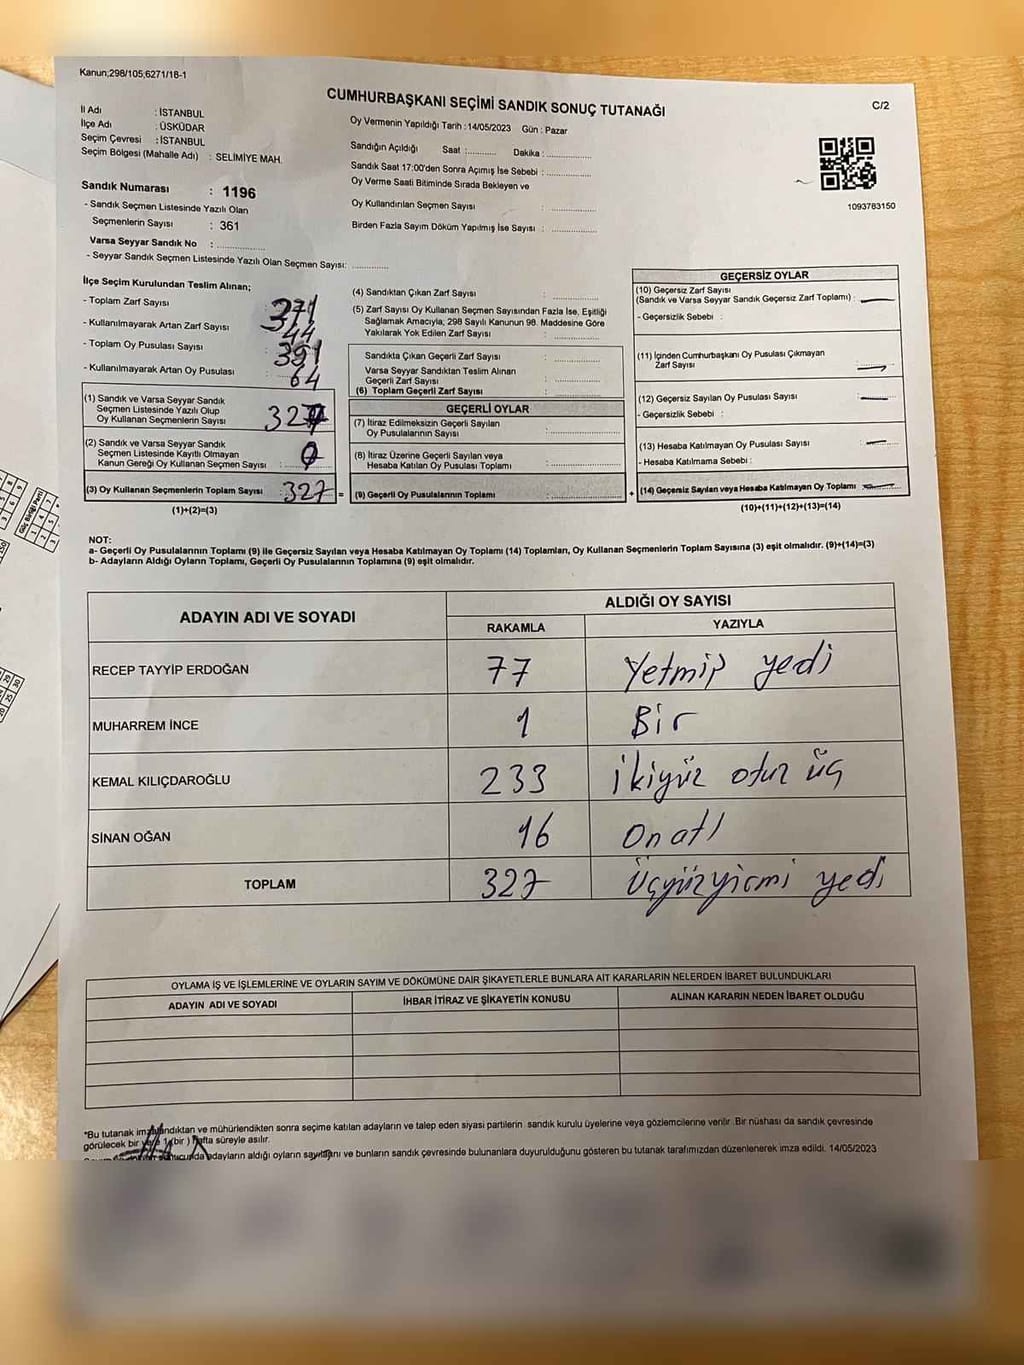 Kanun;298/105;6271/18-1
CUMHURBAŞKANI SEÇİMİ SANDIK SONUÇ TUTANAĞI
C/2
İl Adı : İSTANBUL
İlçe Adı : ÜSKÜDAR
Seçim Çevresi : İSTANBUL
Seçim Bölgesi (Mahalle Adı) : SELİMİYE MAH.
Sandık Numarası : 1196
- Sandık Seçmen Listesinde Yazılı Olan
Seçmenlerin Sayısı : 361
Varsa Seyyar Sandık No : ..............
- Seyyar Sandık Seçmen Listesinde Yazılı Olan Seçmen Sayısı: ............
Oy Vermenin Yapıldığı Tarih : 14/05/2023 Gün : Pazar
Sandığın Açıldığı Saat :.......... Dakika : ..............
Sandık Saat 17:00'den Sonra Açımış İse Sebebi : ..............
Oy Verme Saati Bitiminde Sırada Bekleyen ve
Oy Kullandırılan Seçmen Sayısı : ..............
Birden Fazla Sayım Döküm Yapılmış İse Sayısı : ..............
1093783150
İlçe Seçim Kurulundan Teslim Alınan;
- Toplam Zarf Sayısı 371
- Kullanılmayarak Artan Zarf Sayısı 44
- Toplam Oy Pusulası Sayısı 391
- Kullanılmayarak Artan Oy Pusulası 64
(1) Sandık ve Varsa Seyyar Sandık
Seçmen Listesinde Yazılı Olup
Oy Kullanan Seçmenlerin Sayısı 327
(2) Sandık ve Varsa Seyyar Sandık
Seçmen Listesinde Kayıtlı Olmayan
Kanun Gereği Oy Kullanan Seçmen Sayısı : 0
(3) Oy Kullanan Seçmenlerin Toplam Sayısı : 327 =
(1)+(2)=(3)
(4) Sandıktan Çıkan Zarf Sayısı : ..............
(5) Zarf Sayısı Oy Kullanan Seçmen Sayısından Fazla İse, Eşitliği
Sağlamak Amacıyla; 298 Sayılı Kanunun 98. Maddesine Göre
Yakılarak Yok Edilen Zarf Sayısı : ..............
Sandıkta Çıkan Geçerli Zarf Sayısı : ..............
Varsa Seyyar Sandıktan Teslim Alınan
Geçerli Zarf Sayısı : ..............
(6) Toplam Geçerli Zarf Sayısı : ..............
GEÇERLİ OYLAR
(7) İtiraz Edilmeksizin Geçerli Sayılan
Oy Pusulalarının Sayısı : ..............
(8) İtiraz Üzerine Geçerli Sayılan veya
Hesaba Katılan Oy Pusulası Toplamı : ..............
(9) Geçerli Oy Pusulalarının Toplamı : .............. +
GEÇERSİZ OYLAR
(10) Geçersiz Zarf Sayısı
(Sandık ve Varsa Seyyar Sandık Geçersiz Zarf Toplamı) : —
- Geçersizlik Sebebi :
(11) İçinden Cumhurbaşkanı Oy Pusulası Çıkmayan
Zarf Sayısı : —
(12) Geçersiz Sayılan Oy Pusulası Sayısı : —
- Geçersizlik Sebebi :
(13) Hesaba Katılmayan Oy Pusulası Sayısı : —
- Hesaba Katılmama Sebebi :
(14) Geçersiz Sayılan veya Hesaba Katılmayan Oy Toplamı : —
(10)+(11)+(12)+(13)=(14)
NOT:
a- Geçerli Oy Pusulalarının Toplamı (9) ile Geçersiz Sayılan veya Hesaba Katılmayan Oy Toplamı (14) Toplamları, Oy Kullanan Seçmenlerin Toplam Sayısına (3) eşit olmalıdır. (9)+(14)=(3)
b- Adayların Aldığı Oyların Toplamı, Geçerli Oy Pusulalarının Toplamına (9) eşit olmalıdır.
ADAYIN ADI VE SOYADI ALDIĞI OY SAYISI
RAKAMLA YAZIYLA
RECEP TAYYİP ERDOĞAN 77 Yetmiş yedi
MUHARREM İNCE 1 Bir
KEMAL KILIÇDAROĞLU 233 ikiyüz otuz üç
SİNAN OĞAN 16 On altı
TOPLAM 327 Üçyüzyirmi yedi
OYLAMA İŞ VE İŞLEMLERİNE VE OYLARIN SAYIM VE DÖKÜMÜNE DAİR ŞİKAYETLERLE BUNLARA AİT KARARLARIN NELERDEN İBARET BULUNDUKLARI
ADAYIN ADI VE SOYADI İHBAR İTİRAZ VE ŞİKAYETİN KONUSU ALINAN KARARIN NEDEN İBARET OLDUĞU
*Bu tutanak imzalandıktan ve mühürlendikten sonra seçime katılan adayların ve talep eden siyasi partilerin sandık kurulu üyelerine veya gözlemcilerine verilir. Bir nüshası da sandık çevresinde
görülecek bir yere 1 (bir) hafta süreyle asılır.
adayların aldığı oyların sayıldığını ve bunların sandık çevresinde bulunanlara duyurulduğunu gösteren bu tutanak tarafımızdan düzenlenerek imza edildi. 14/05/2023